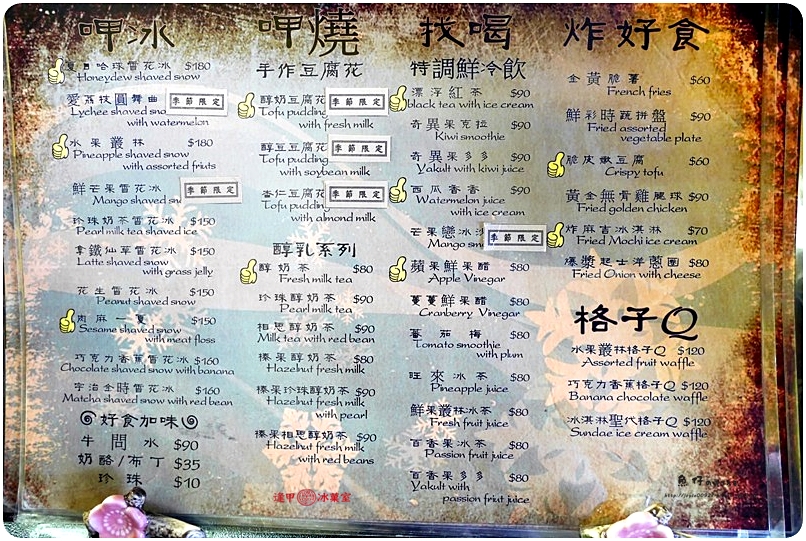 呷冰
夏日哈珠雪花冰 $180
Honeydew shaved snow
愛荔枝圓舞曲 季節限定
Lychee shaved
with watermelon
水果叢林 $180
Pineapple shaved snow
with assorted friuts
鮮芒果雪花冰 季節限定
Mango shaved
珍珠奶茶雪花冰 $150
Pearl milk tea shaved snow
拿鐵仙草雪花冰 $150
Latte shaved snow
with grass jelly
花生雪花冰 $150
Peanut shaved snow
肉麻一夏 $150
Sesame shaved snow
with meat floss
巧克力香蕉雪花冰 $160
Chocolate shaved snow with banana
宇治金時雪花冰 $160
Matcha shaved snow with red bean
好食加味
牛問水 $90
奶酪/布丁 $35
珍珠 $10
呷燒
手作豆腐花
醇奶豆腐花 季節限定
Tofu pudding
with fresh milk
醇豆豆腐花 季節限定
Tofu pudding
with soybean milk
杏仁豆腐花 季節限定
Tofu pudding
with almond milk
醇乳系列
醇奶茶 $80
Fresh milk tea
珍珠醇奶茶 $90
Pearl milk tea
相思醇奶茶 $90
Milk tea with red bean
榛果醇奶茶 $80
Hazelnut fresh milk
榛果珍珠醇奶茶 $90
Hazelnut fresh milk
with pearl
榛果相思醇奶茶 $90
Hazelnut fresh milk
with red beans
逢甲 冰菓室
找喝
特調鮮冷飲
漂浮紅茶 $90
black tea with ice cream
奇異果克拉 $90
Kiwi smoothie
奇異果多多 $90
Yakult with kiwi juice
西瓜香香 $90
Watermelon juice
with ice cream
芒果戀冰沙 季節限定
Mango
蘋果鮮果醋 $80
Apple Vinegar
蔓蔓鮮果醋 $80
Cranberry Vinegar
蕃茄梅 $80
Tomato smoothie
with plum
旺來冰茶 $80
Pineapple juice
鮮果叢林冰茶 $80
Fresh fruit juice
百香果冰茶 $80
Passion fruit juice
百香果多多 $80
Yakult with
passion friut juice
炸好食
金黃脆薯 $60
French fries
鮮彩時蔬拼盤 $90
Fried assorted
vegetable plate
脆皮嫩豆腐 $60
Crispy tofu
黃金無骨雞腿球 $90
Fried golden chicken
炸麻吉冰淇淋 $70
Fried Mochi ice cream
爆漿起士洋蔥圈 $80
Fried Onion with cheese
格子Q
水果叢林格子Q $120
Assorted fruit waffle
巧克力香蕉格子Q $120
Banana chocolate waffle
冰淇淋聖代格子Q $120
Sundae ice cream waffle